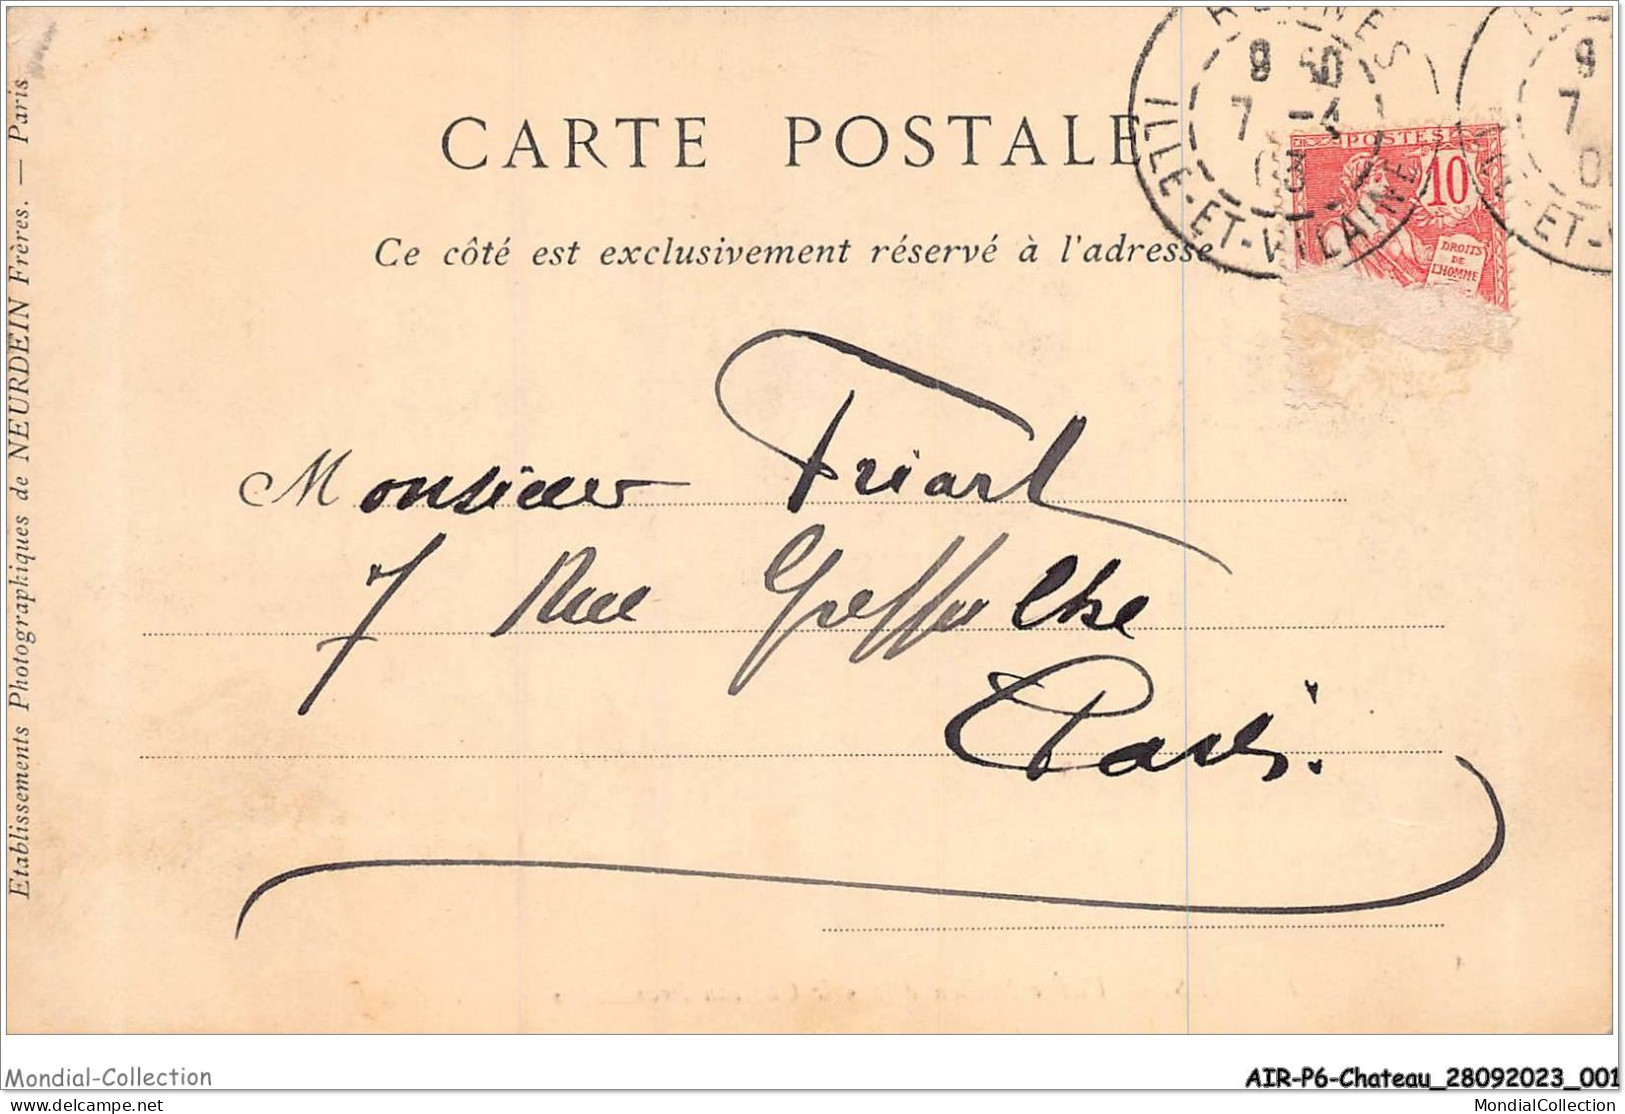 CARTE POSTALE
Ce côté est exclusivement réservé à l'adresse
RENNES
ILLE-ET-VILAINE
7
POSTES
10
DROITS
DE
L'HOMME
ILLE-ET-V
7
Monsieur Friart
7 Rue Greffulhe
Paris.
Etablissements Photographiques de NEURDEIN Frères. — Paris
Mondial-Collection
AIR-P6-Chateau_28092023_001
MondialCollection.net
MondialCollection